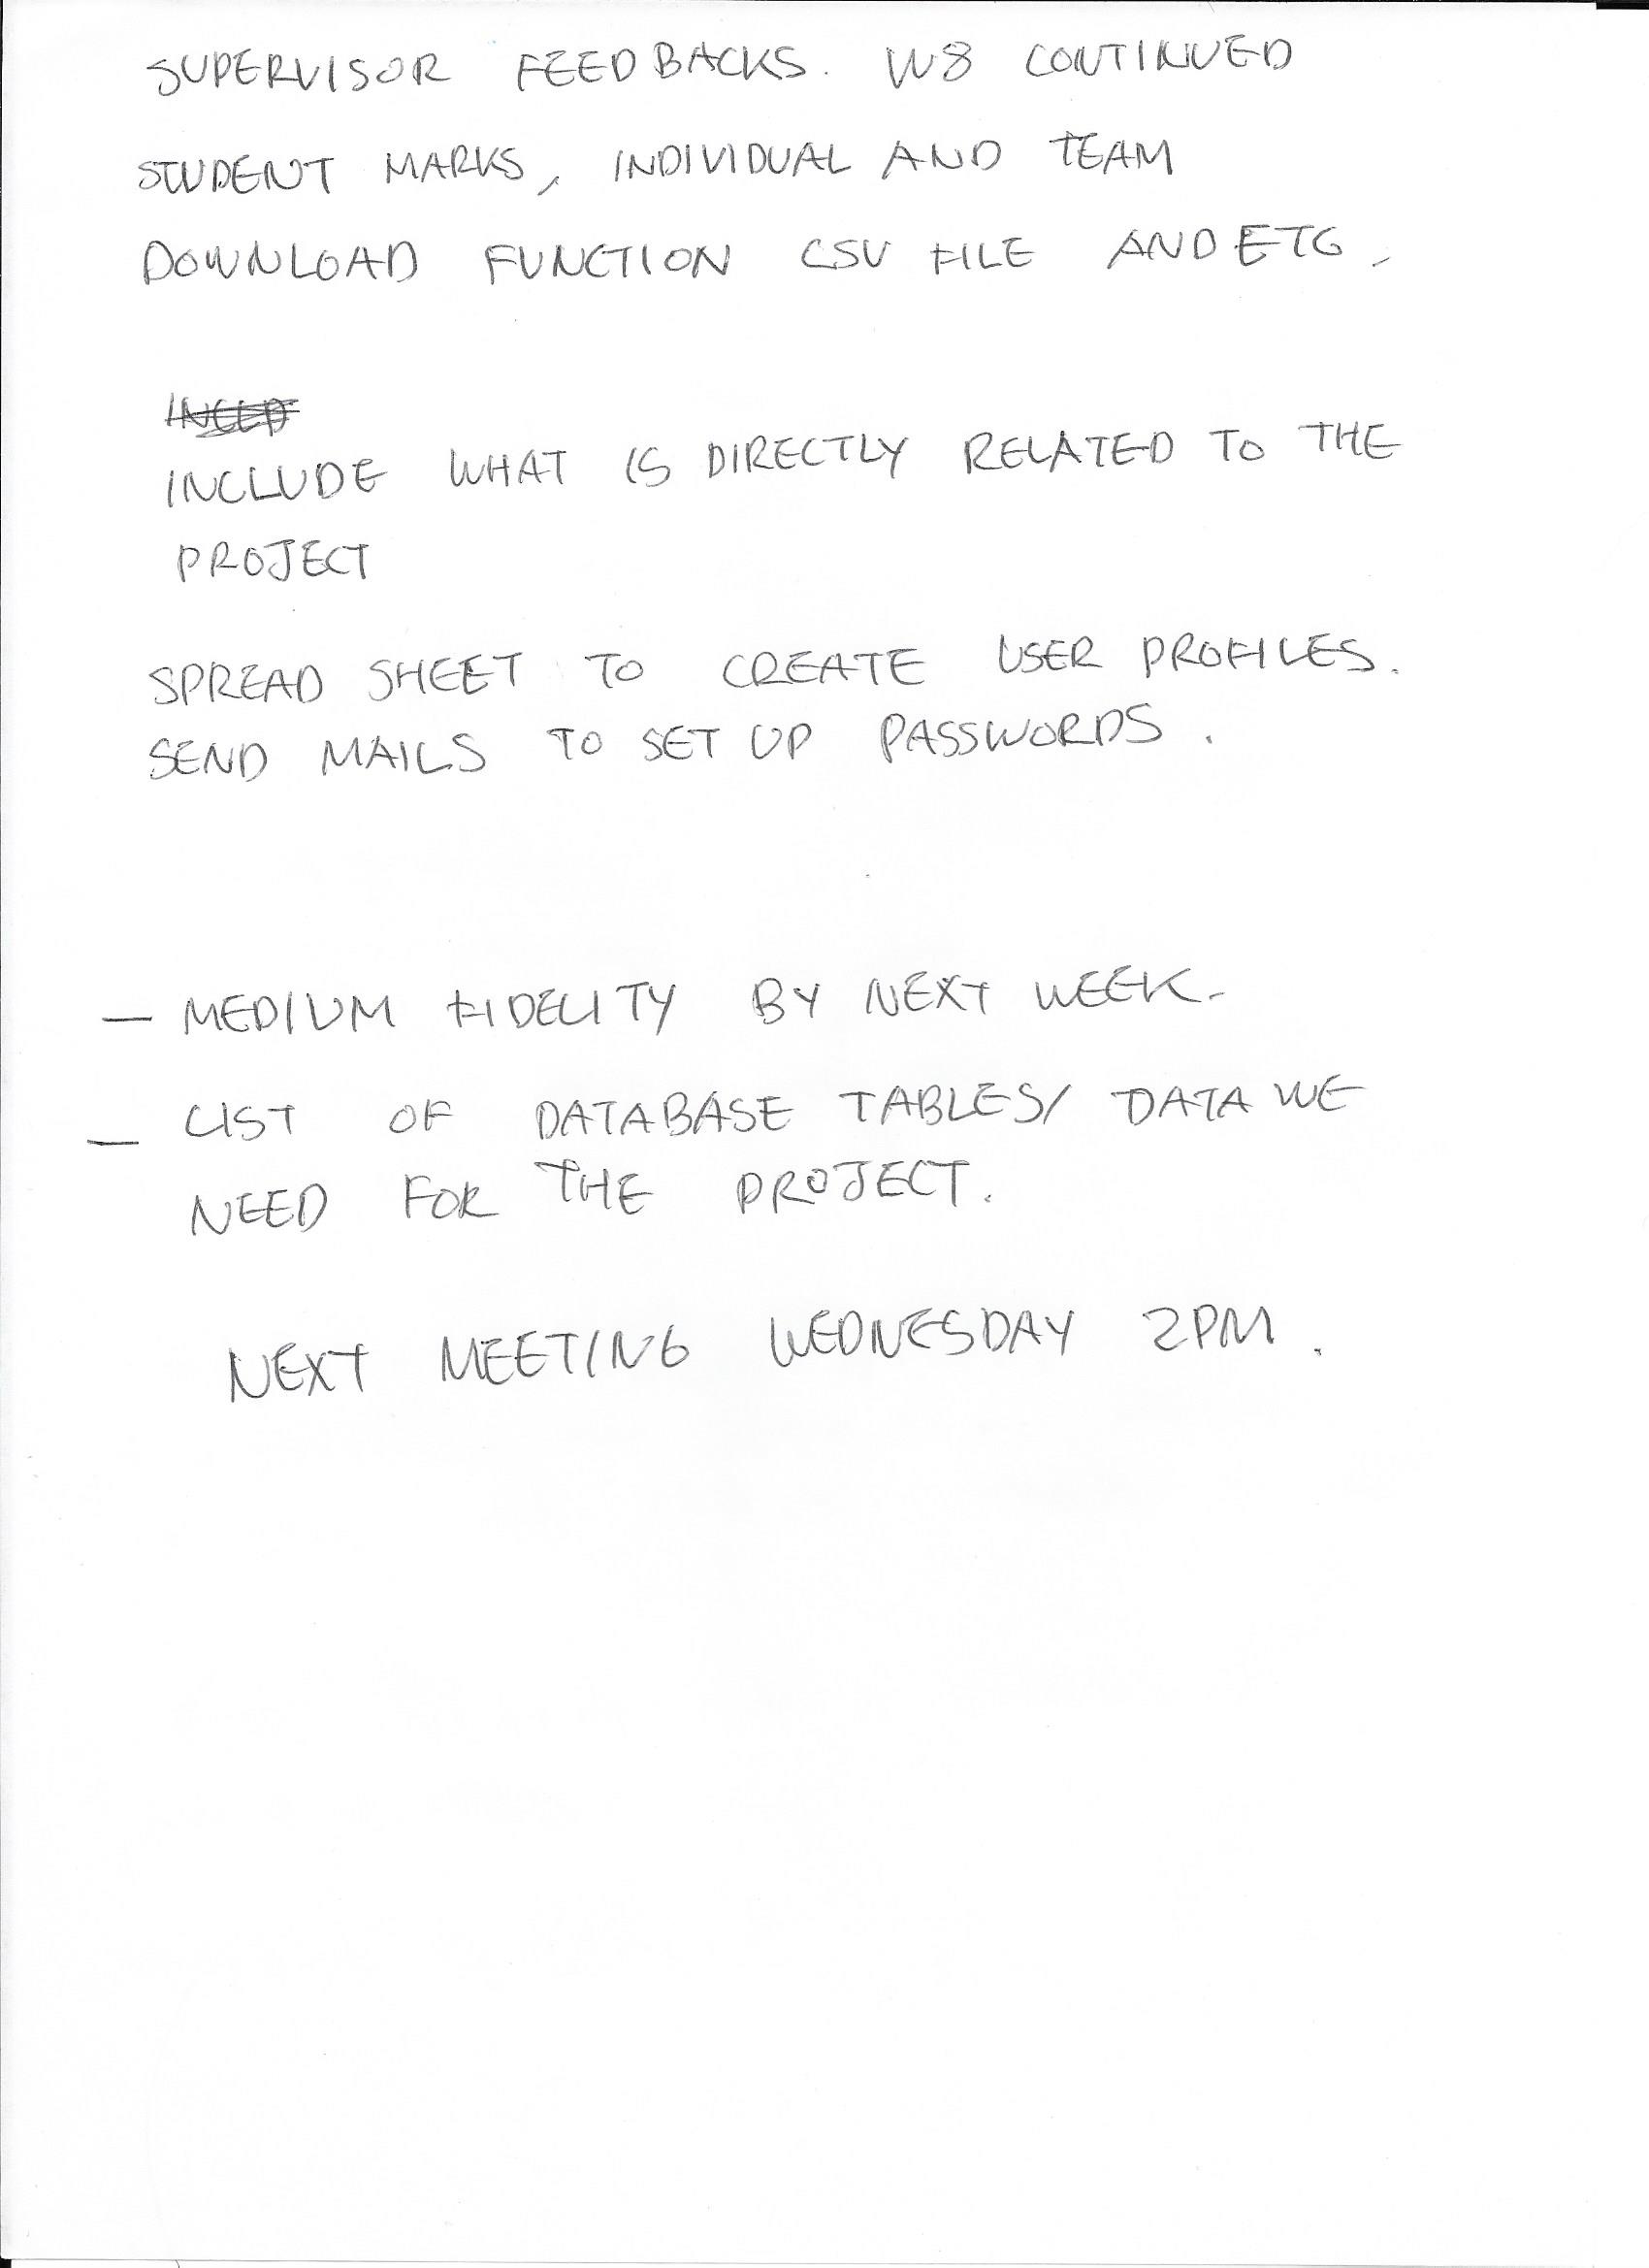 SUPERVISOR FEEDBACKS. W8 CONTINUED
STUDENT MARKS, INDIVIDUAL AND TEAM
DOWNLOAD FUNCTION CSV FILE AND ETC.
INCLUDE WHAT IS DIRECTLY RELATED TO THE
PROJECT
SPREAD SHEET TO CREATE USER PROFILES.
SEND MAILS TO SET UP PASSWORDS.
— MEDIUM FIDELITY BY NEXT WEEK.
— LIST OF DATABASE TABLES/ DATA WE
NEED FOR THE PROJECT.
NEXT MEETING WEDNESDAY 2PM.